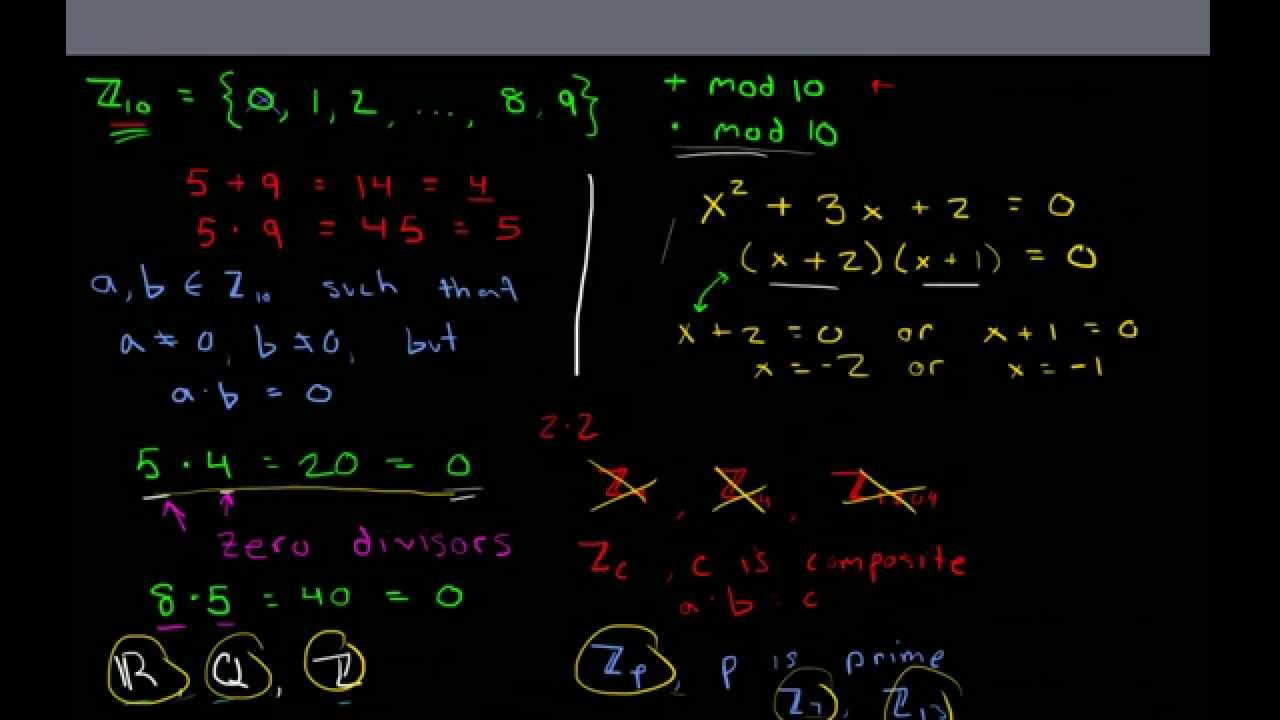 ℤ₁₀ = {0, 1, 2, ..., 8, 9}
+ mod 10 ←
· mod 10
5 + 9 = 14 = 4
5 · 9 = 45 = 5
a, b ∈ ℤ₁₀ such that
a ≠ 0, b ≠ 0, but
a · b = 0
5 · 4 = 20 = 0
zero divisors
8 · 5 = 40 = 0
ℝ, ℚ, ℤ
x² + 3x + 2 = 0
(x + 2)(x + 1) = 0
x + 2 = 0 or x + 1 = 0
x = -2 or x = -1
2 · 2
ℤ, ℤ₄, ℤ
ℤc, c is composite
a · b = c
ℤp, p is prime
ℤ₇, ℤ₁₃